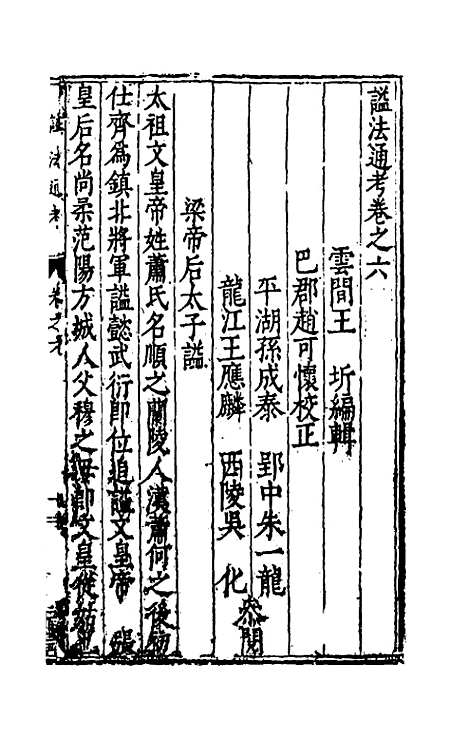 謚法通考卷之六
雲間王　圻編輯
巴郡趙可懷校正
平湖孫成泰　郢中朱一龍
龍江王應麟　西陵吳　化
叅閱
梁帝后太子謚
太祖文皇帝姓蕭氏名順之蘭陵人漢蕭何之後初
仕齊爲鎮北將軍謚懿武衍即位追謚文皇帝　張
皇后名尚柔范陽方城人父穆之母即文皇從姑
謚法通考　卷之六